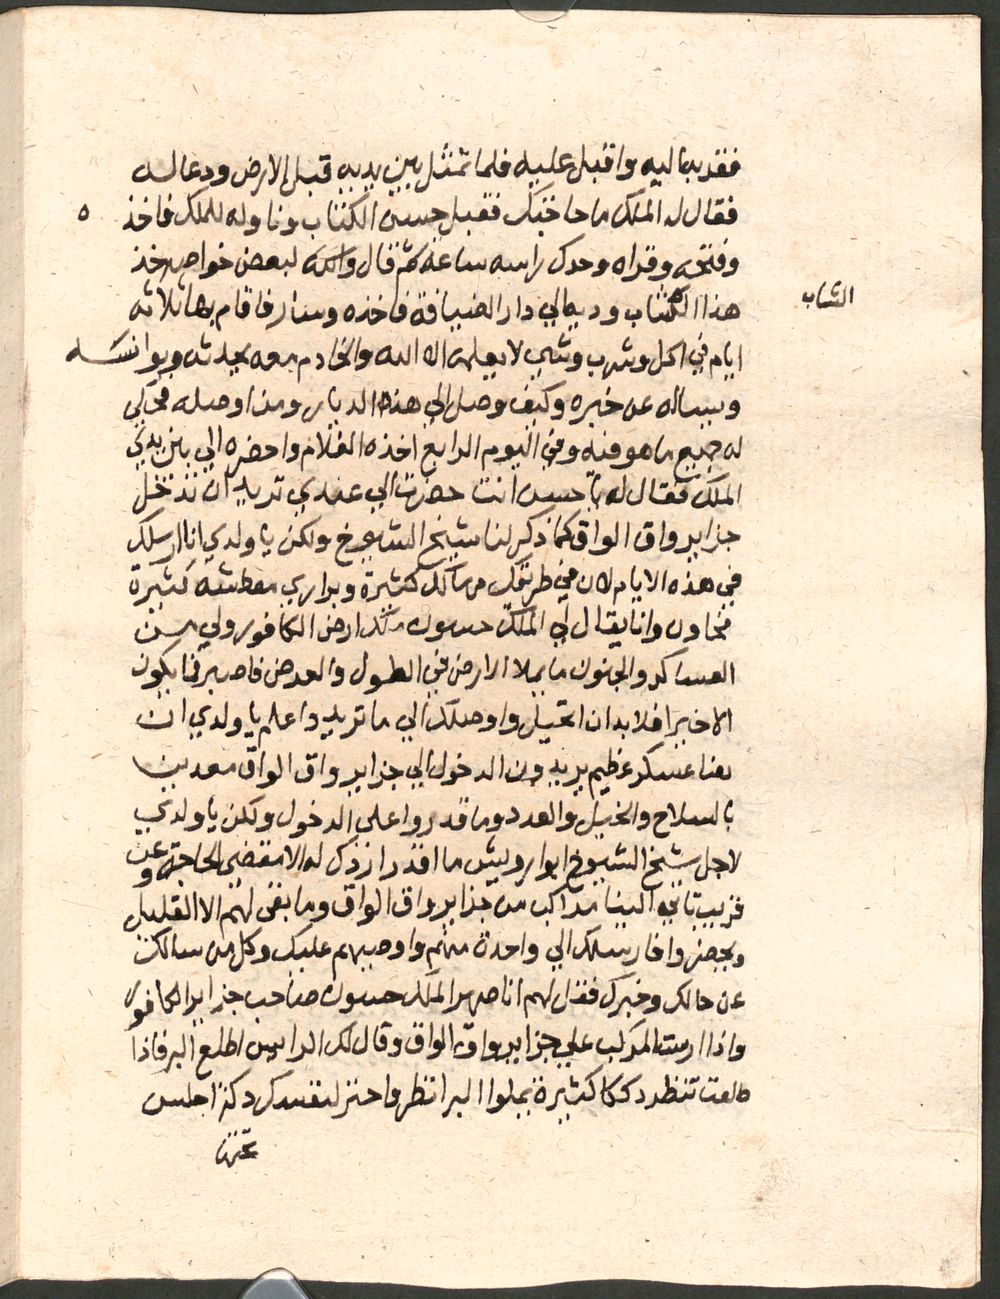 فقدبه اليه واقبل عليه فلما تمثل بين يديه قبل الارض ودعا له
فقال له الملك ما حاجتك فقبل حسن الكتاب وناوله للملك فاخذ ه
وفتحه وقراه وحرك راسه ساعة ثم قال والله لبعض خواصه خذ
هذا الكتاب وديه الي دار الضيافة فاخذه وسار فاقام بها ثلاثه
الشاب
ايام في اكل وشرب وشي لا يعلمه الا الله والخادم معه يحدثه ويوانسه
ويساله عن خبره وكيف وصل الي هذه الديار ومن اوصله فحكي
له جميع ما هو فيه وفي اليوم الرابع اخذه الغلام واحضره الي بين يدي
الملك فقال له يا حسن انت حضرت الي عندي تريد ان تدخل
جزاير واق الواق كما ذكر لنا شيخ الشيوخ ولكن يا ولدي انا ارسلك
في هذه الايام لان في طريقك مهالك كثيرة وبراري معطشه كثيرة
مخاوف وانا يقال لي الملك حسون ملك ارض الكافور ولي من
العساكر والجنود ما يملا الارض في الطول والعرض فاصبر فما يكون
الا خيرا فلابد ان اتحيل واوصلك الي ما تريد واعلم يا ولدي ان
معنا عسكر عظيم يريدون الدخول الي جزاير واق الواق معدين
بالسلاح والخيل والعدد وما قدروا على الدخول ولكن يا ولدي
لاجل شيخ الشيوخ ابوا رويش ما اقدر اردك له الا مقضى الحاجة وعن
قريب تاتي الينا مراكب من جزاير واق الواق وما بقى لهم الا القليل
ويحضروا فارسلك الي واحدة منهم واوصيهم عليك وكل من سالك
عن حالك وخبرك فقل لهم انا صهر الملك حسون صاحب جزاير الكافور
واذا ارست المركب علي جزاير واق الواق وقال لك الرايس اطلع البر فاذا
طلعت تنظر دككا كثيرة يملوا البر انظر واختر لنفسك دكة اجلس
تحتها